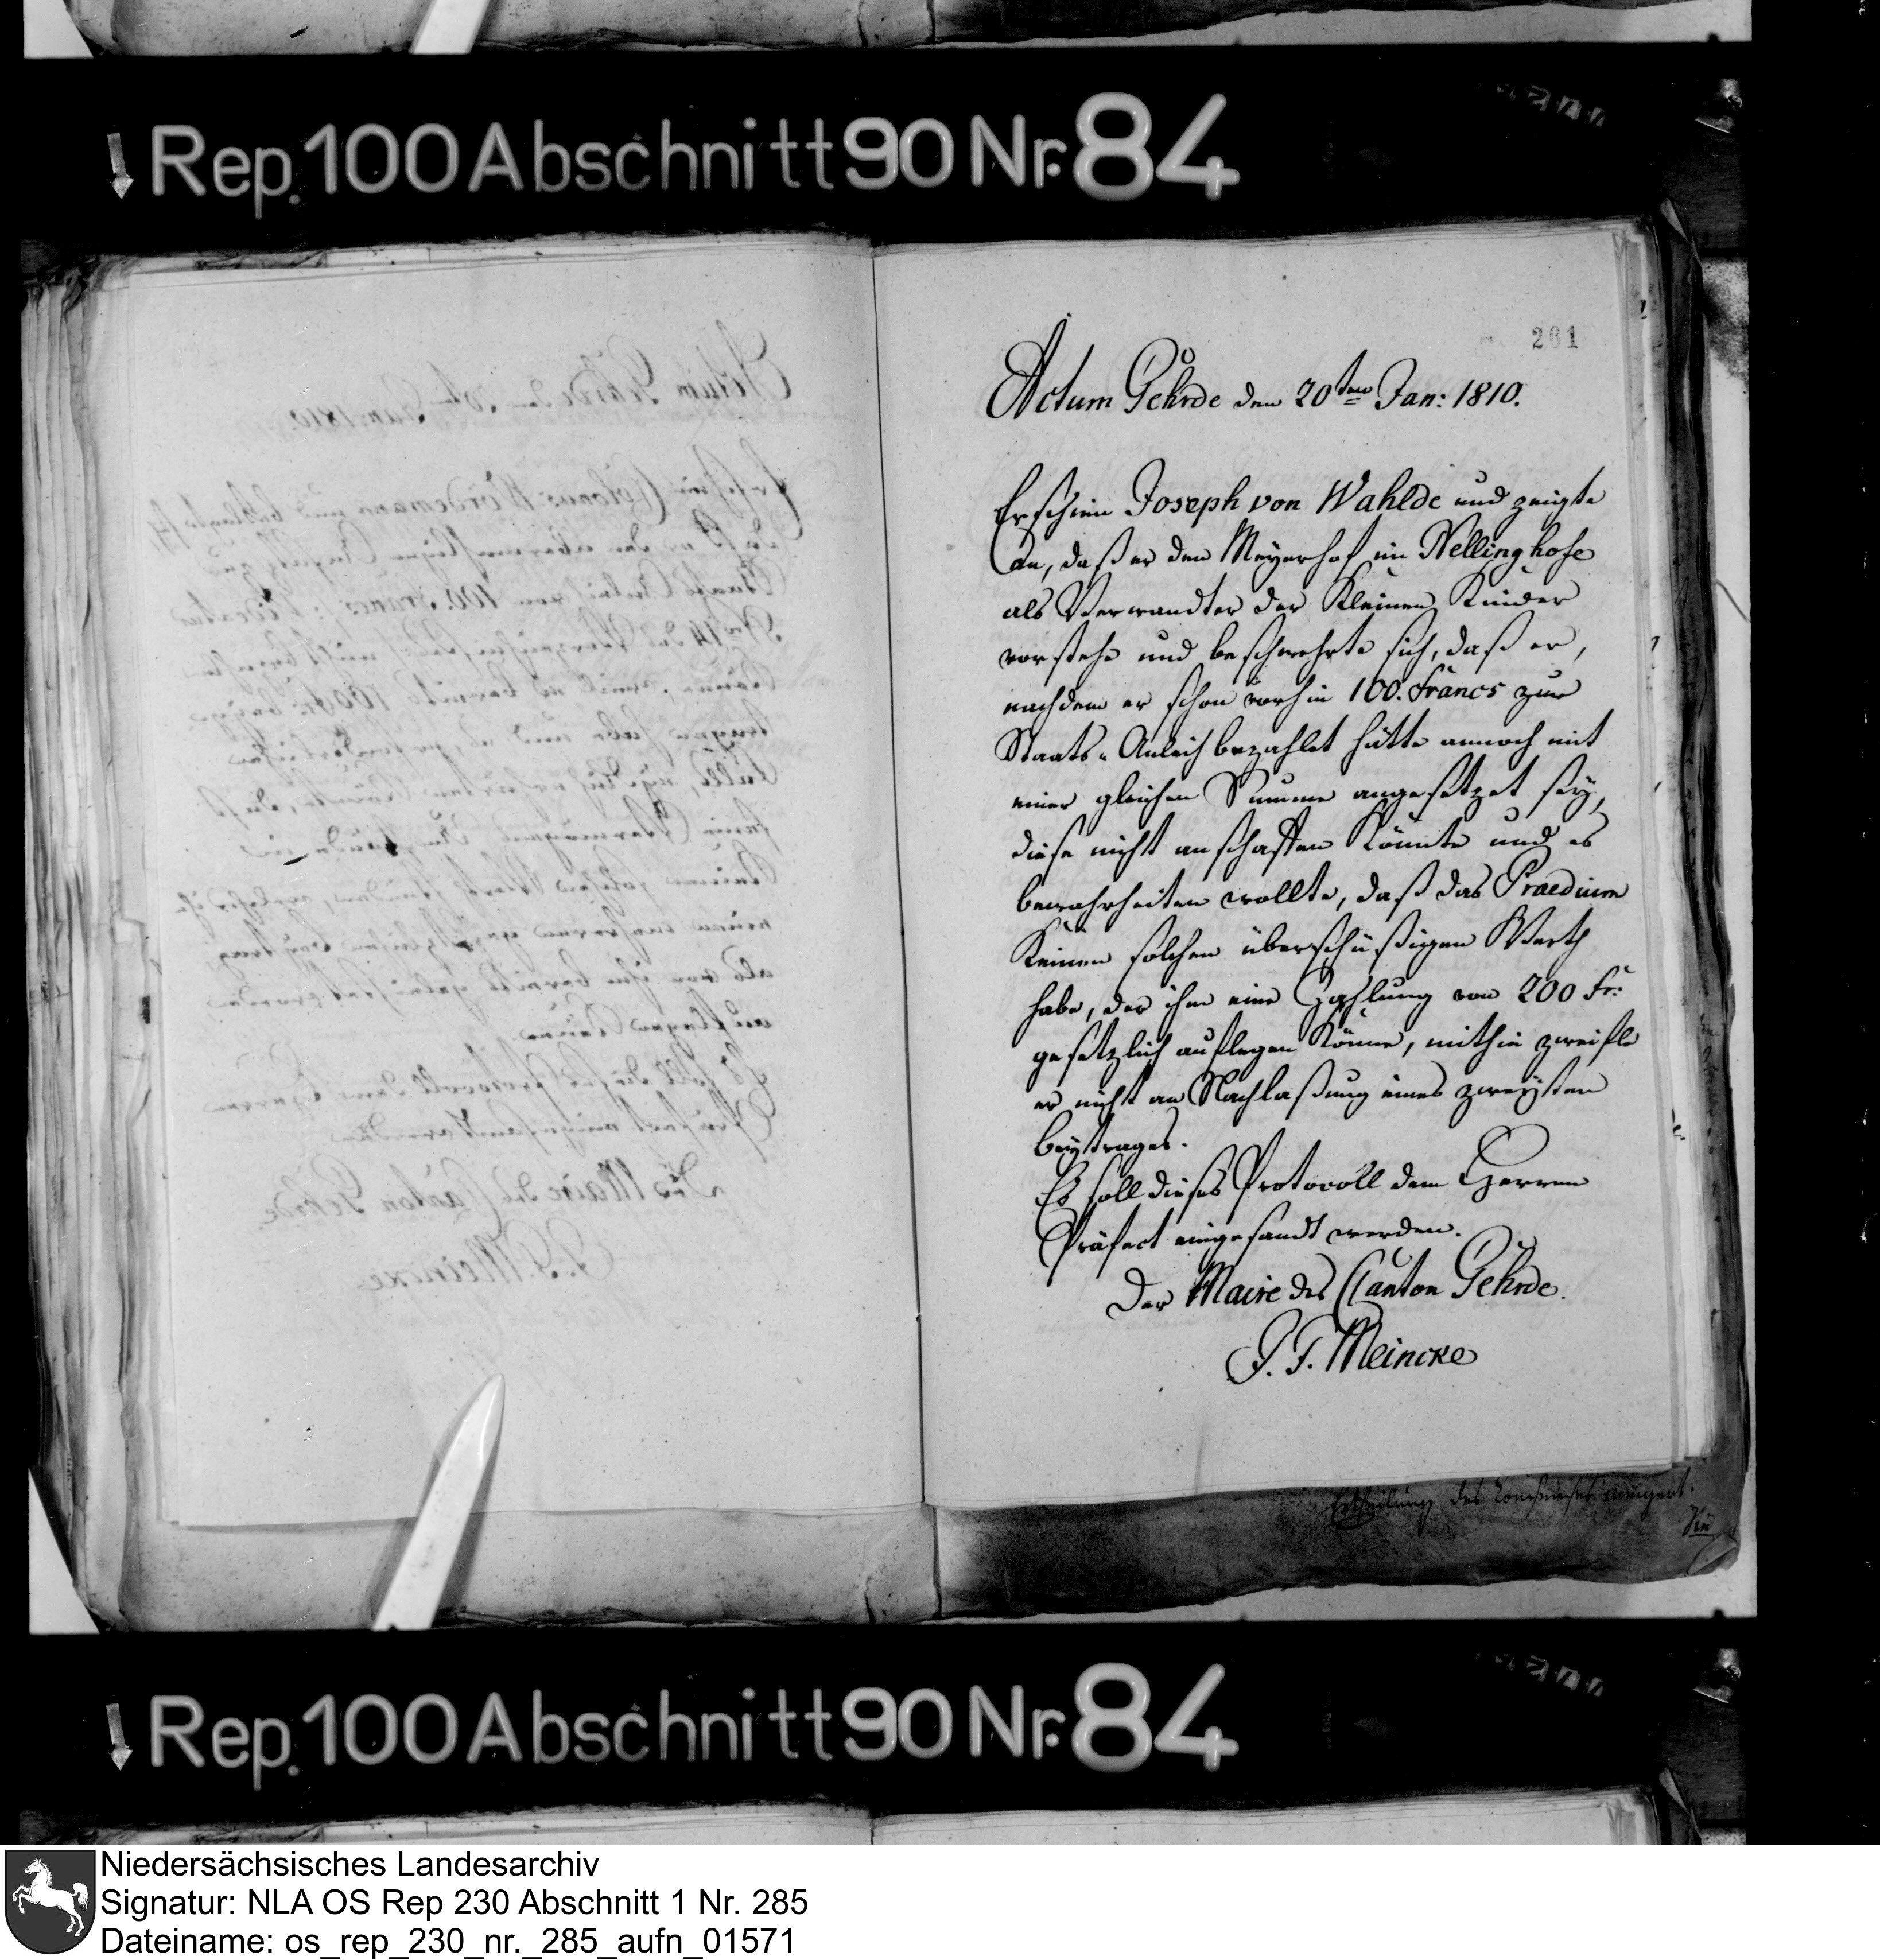 Rep. 100 Abschnitt 90 Nr. 84
261
Actum Gehrde den 20ten Jan: 1810.
Erschien Joseph von Wahlde und zeigte
an, daß er den Meyerhof im Nellinghofe
als Verwandter der Kleinen Kinder
vorstehe und beschwehrte sich, daß er,
nachdem er schon vorhin 100. Francs zur
Staats-Anleih bezahlet hätte annoch mit
einer gleichen Summe angesetzet sey,
diese nicht anschaffen könnte und es
bewahrheiten wollte, daß das Praedium
keinen solchen überschüßigen Werth
habe, der ihm eine Zahlung von 200 Fr:
gesetzlich auflegen könne, mithin zweifle
er nicht an Nachlaßung eines zweyten
beytrages.
Es soll dieses Protocoll dem Herren
Präfect eingesandt werden.
Der Maire des Canton Gehrde.
J. F. Meincke
Ertheilung des Consenses weigert.
Rep. 100 Abschnitt 90 Nr. 84
Niedersächsisches Landesarchiv
Signatur: NLA OS Rep 230 Abschnitt 1 Nr. 285
Dateiname: os_rep_230_nr._285_aufn_01571